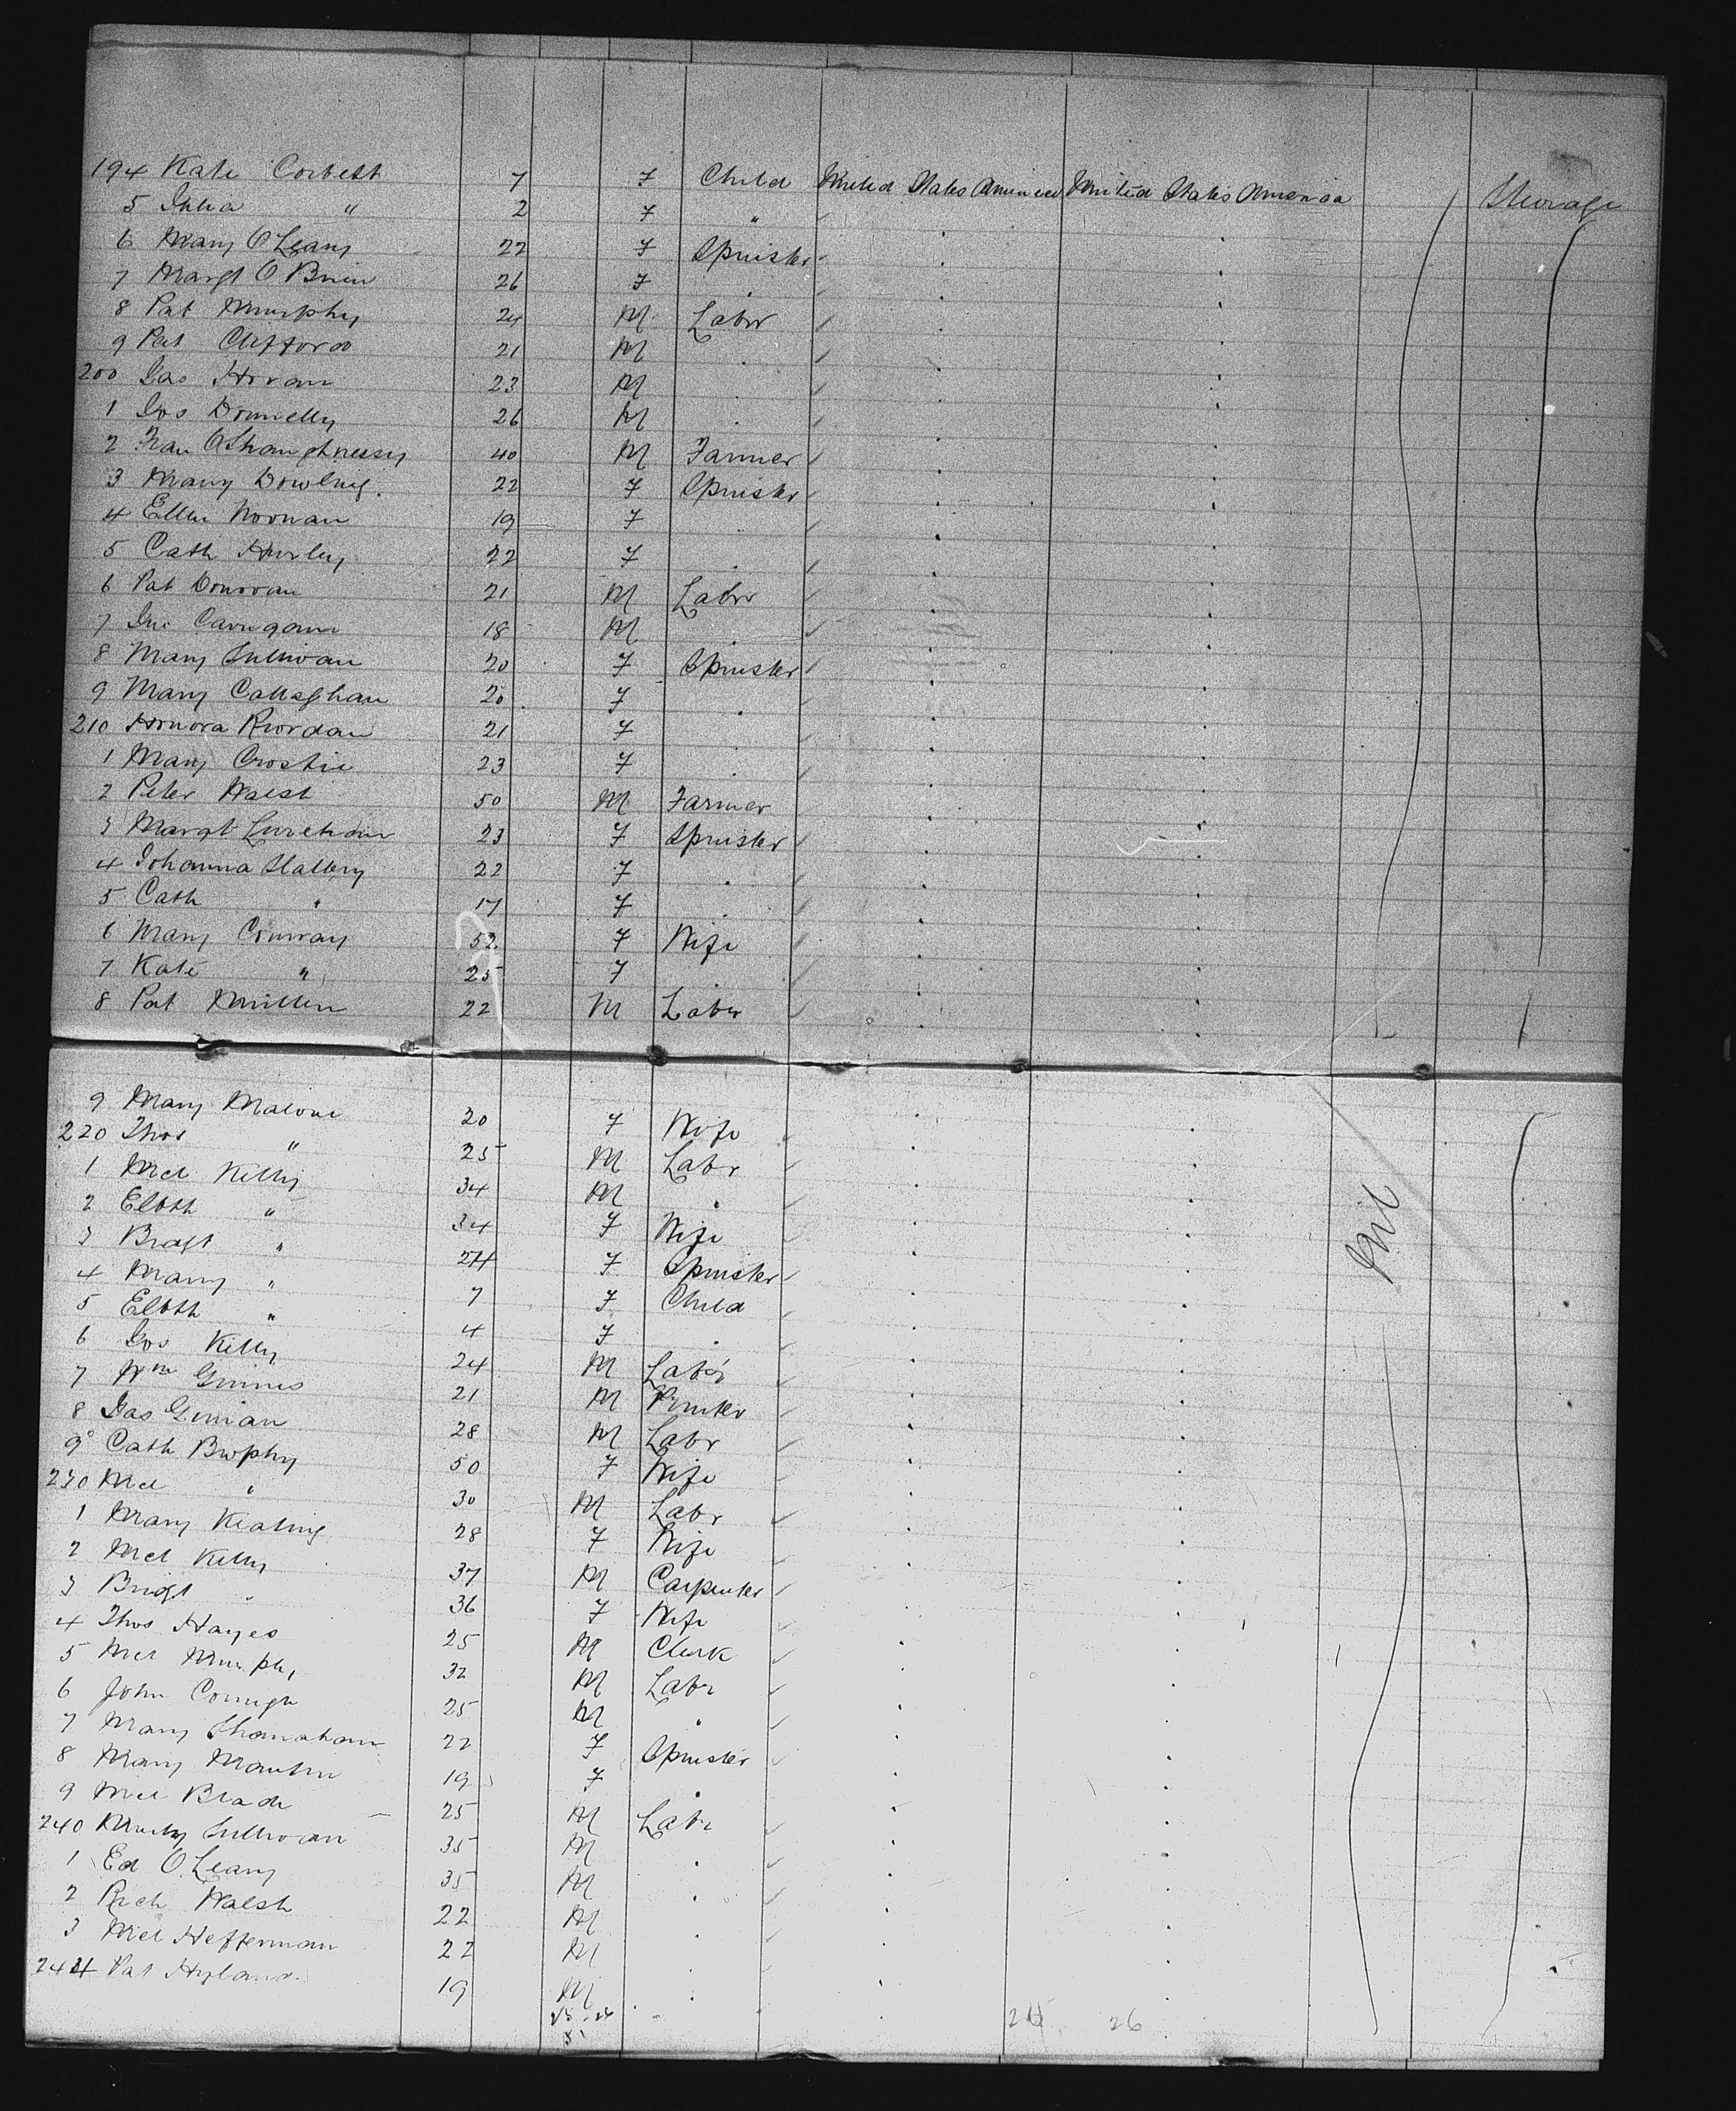 194 Kate Corbett 7 F Child United States America United States America Steerage
5 Julia " 2 F "
6 Mary O'Leary 22 F Spinster
7 Margt O'Brien 26 F
8 Pat Murphy 24 M Labr
9 Pat Clifford 21 M
200 Jas Horan 23 M
1 Jos Donnelly 26 M
2 Fran O'Shaughnessy 40 M Farmer
3 Mary Dowling 22 F Spinster
4 Ellen Noonan 19 F
5 Cath Hurley 22 F
6 Pat Donovan 21 M Labr
7 18 M
8 Mary Sullivan 20 F Spinster
9 Mary Callaghan 20 F
210 Honora Riordan 21 F
1 Mary Crosbie 23 F
2 Peter Walsh 50 M Farmer
3 Margt 23 F Spinster
4 Johanna Slattery 22 F
5 Cath " 17 F
6 Mary Conway 52 F Wife
7 Kate " 25 F
8 Pat Mullen 22 M Labr
9 Mary Malone 20 F Wife
220 Thos " 25 M Labr
1 Mcl Kelly 34 M "
2 Elbth " 34 F Wife
3 Bridgt " 24 F Spinster
4 Mary " 7 F Child
5 Elbth " 4 F
6 Jos Kelly 24 M Labr
7 Wm 21 M Printer
8 Jas 28 M Labr
9 Cath Brophy 50 F Wife
230 Mcl " 30 M Labr
1 Mary Keating 28 F Wife
2 Mcl Kelly 37 M Carpenter
3 Bridgt " 36 F Wife
4 Thos Hayes 25 M Clerk
5 Mcl Murphy 32 M Labr
6 John 25 M "
7 Mary Shanahan 22 F Spinster
8 Mary 19 F "
9 Mcl 25 M Labr
240 Sullivan 35 M
1 Ed O'Leary 35 M
2 Rich Walsh 22 M
3 Mcl Heffernan 22 M
244 Pat Hyland 19 M
Nil
26